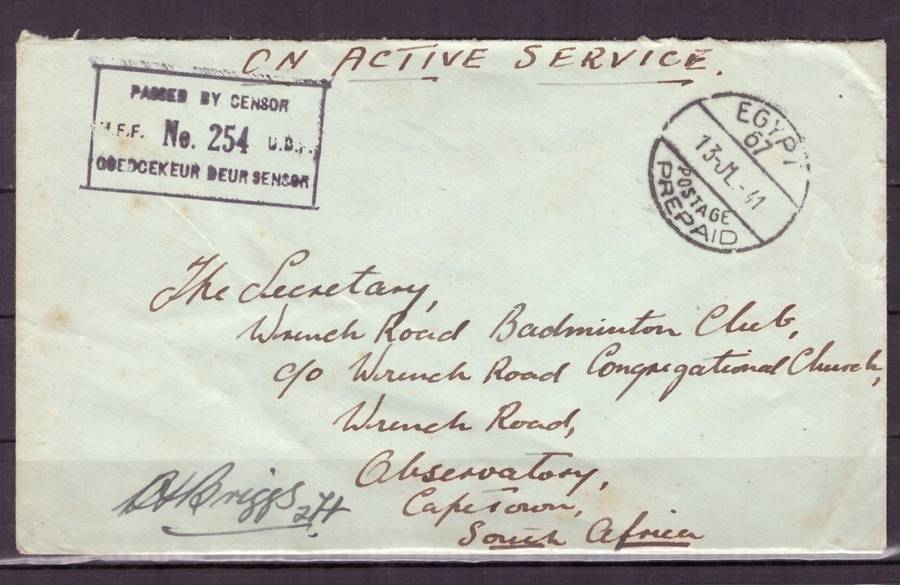 ON ACTIVE SERVICE.
PASSED BY CENSOR
M.E.F. No. 254 U.D.F.
GOEDGEKEUR DEUR SENSOR
EGYPT
67
13-JL-41
POSTAGE
PREPAID
The Secretary,
Wrench Road Badminton Club,
c/o Wrench Road Congregational Church,
Wrench Road,
Observatory,
Capetown,
South Africa
Briggs